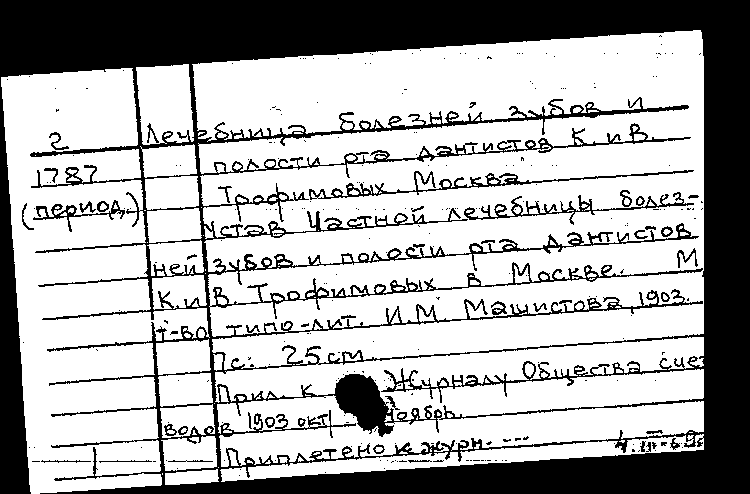 2 Лечебница болезней зубов и
1787 полости рта дантистов К. и В.
(период.) Трофимовых. Москва.
Устав Частной лечебницы болез-
ней зубов и полости рта дантистов
К. и В. Трофимовых в Москве. М,
т-во типо-лит. И.М. Машистова, 1903.
7с: 25cm
Прил. к Журналу Общества счет
водов 1903 окт/ - ноябрь.
Приплетено к журн. ---